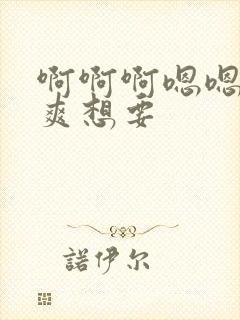 啊啊啊嗯嗯
爽想要
諾伊尔